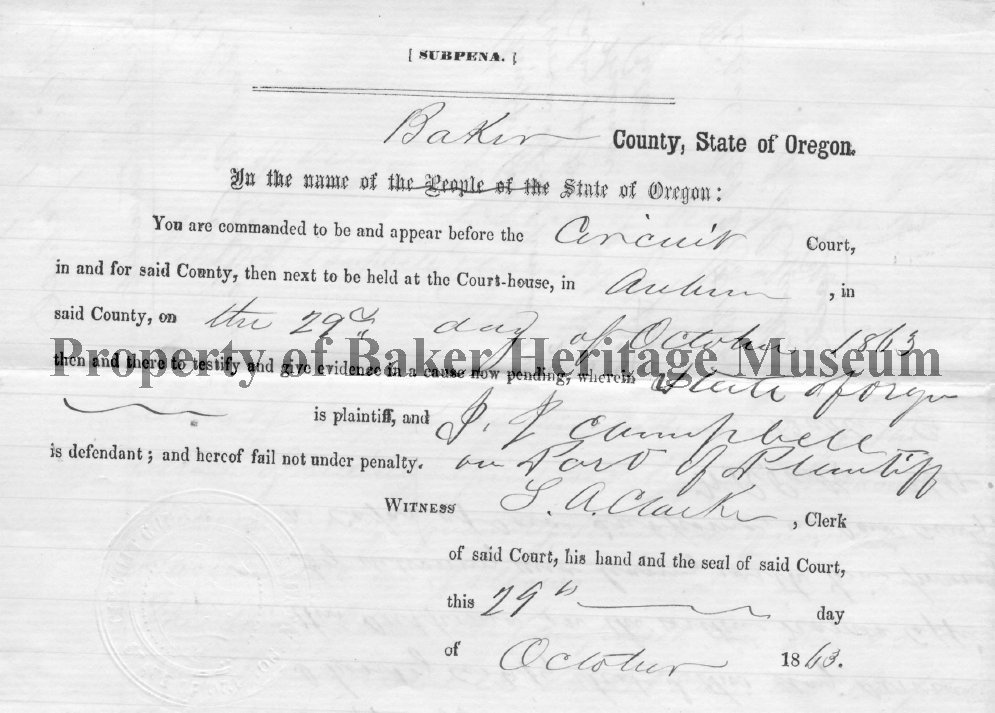 [ SUBPENA. ]
Baker County, State of Oregon.
In the name of the People of the State of Oregon:
You are commanded to be and appear before the Circuit Court,
in and for said County, then next to be held at the Court-house, in Auburn, in
said County, on the 29th day of October 1863
Property of Baker Heritage Museum
then and there to testify and give evidence in a cause now pending, wherein State of Oregon
is plaintiff, and J. J. Campbell
is defendant; and hereof fail not under penalty. on Part of Plaintiff
WITNESS S. A. Clarke, Clerk
of said Court, his hand and the seal of said Court,
this 29th day
of October 1863.